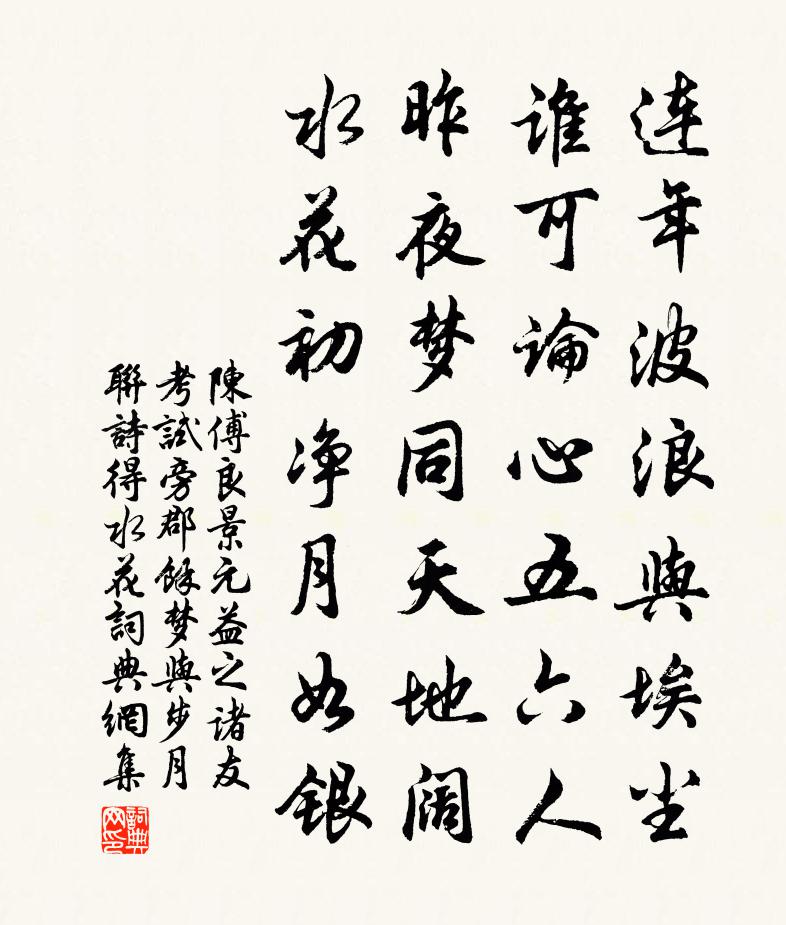 連年波浪與埃尘
誰可論心五六人
昨夜梦同天地阔
水花初净月如银
陳傅良景元益之諸友
考試旁郡餘梦與步月
聯詩得水花詞典網集
詞典网印